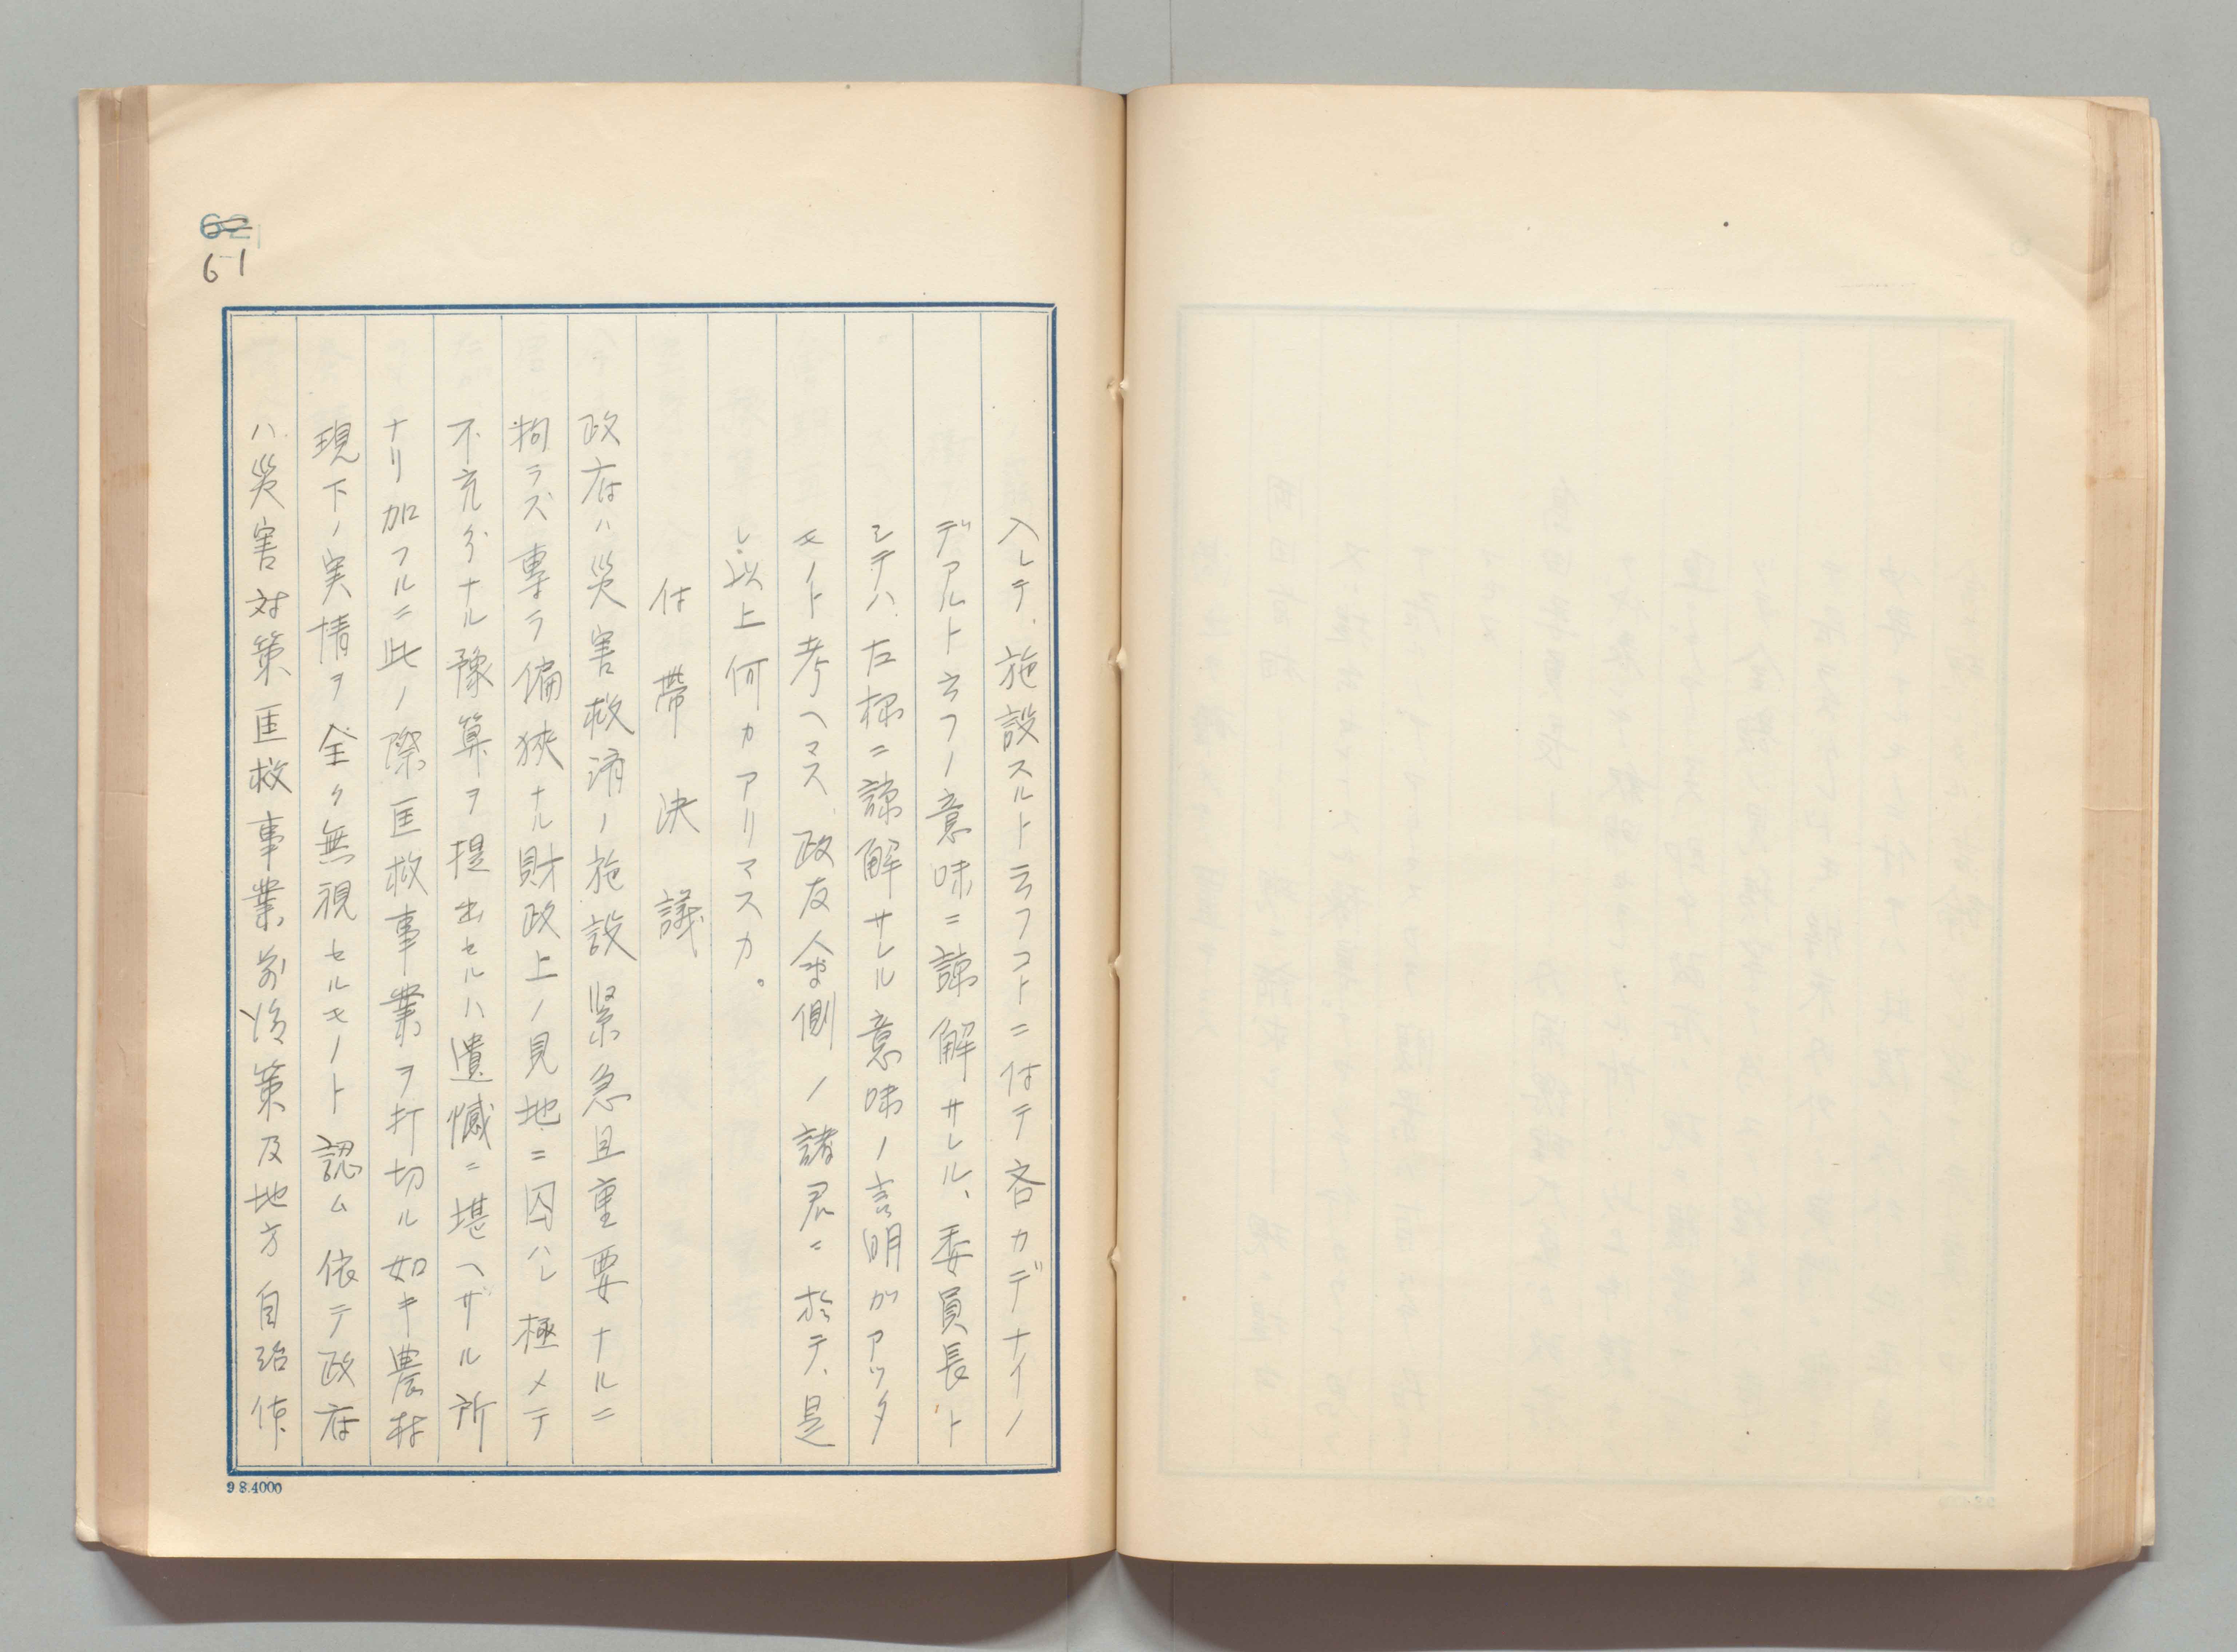 62
61
入レテ、施設スルト云フコトニ付テ吝カデナイノ
デアルト云フノ意味ニ諒解サレル、委員長ト
シテハ、左様ニ諒解サレル意味ノ言明ガアッタ
モノト考ヘマス、政友会側ノ諸君ニ於テ、是
レ以上何カアリマスカ。
付帯決議
政府ハ災害救済ノ施設緊急且重要ナルニ
拘ラズ専ラ偏狭ナル財政上ノ見地ニ囚ハレ極メテ
不充分ナル豫算ヲ提出セルハ遺憾ニ堪ヘザル所
ナリ加フルニ此ノ際匡救事業ヲ打切ル如キ農村
現下ノ実情ヲ全ク無視セルモノト認ム依テ政府
ハ災害対策匡救事業善後策及地方自治体
9 8.4000